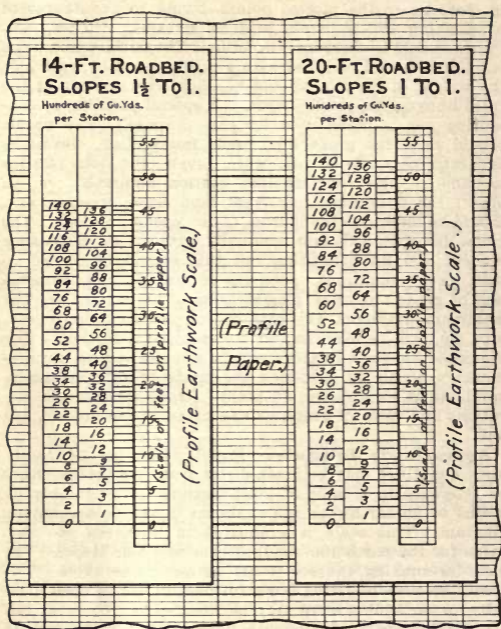 14-FT. ROADBED.
SLOPES 1½ TO 1.
Hundreds of Cu.Yds.
per Station.
140
132
124
116
108
100
92
84
76
68
60
52
44
38
34
30
26
22
18
14
10
8
6
4
2
0
136
128
120
112
104
96
88
80
72
64
56
48
40
36
32
28
24
20
16
12
9
7
5
3
1
55
50
45
40
35
30
25
20
15
10
5
0
(Scale of feet on profile paper.)
(Profile Earthwork Scale.)
(Profile
Paper.)
20-FT. ROADBED.
SLOPES 1 TO 1.
Hundreds of Cu.Yds.
per Station.
140
132
124
116
108
100
92
84
76
68
60
52
44
38
34
30
26
22
18
14
10
8
6
4
2
0
136
128
120
112
104
96
88
80
72
64
56
48
40
36
32
28
24
20
16
12
9
7
5
3
1
55
50
45
40
35
30
25
20
15
10
5
0
(Scale of feet on profile paper.)
(Profile Earthwork Scale.)